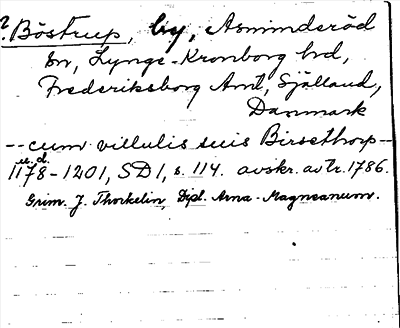 ?. Böstrup, by, Asminderöd
sn, Lynge-Kronborg hd,
Frederiksborg Amt, Själland,
Danmark
-- cum villulis suis Birsethorp --
u.d.
1178-1201, SD1, s. 114. avskr. av tr. 1786.
Grim. J. Thorkelin, Dipl. Arna-Magnæanum.